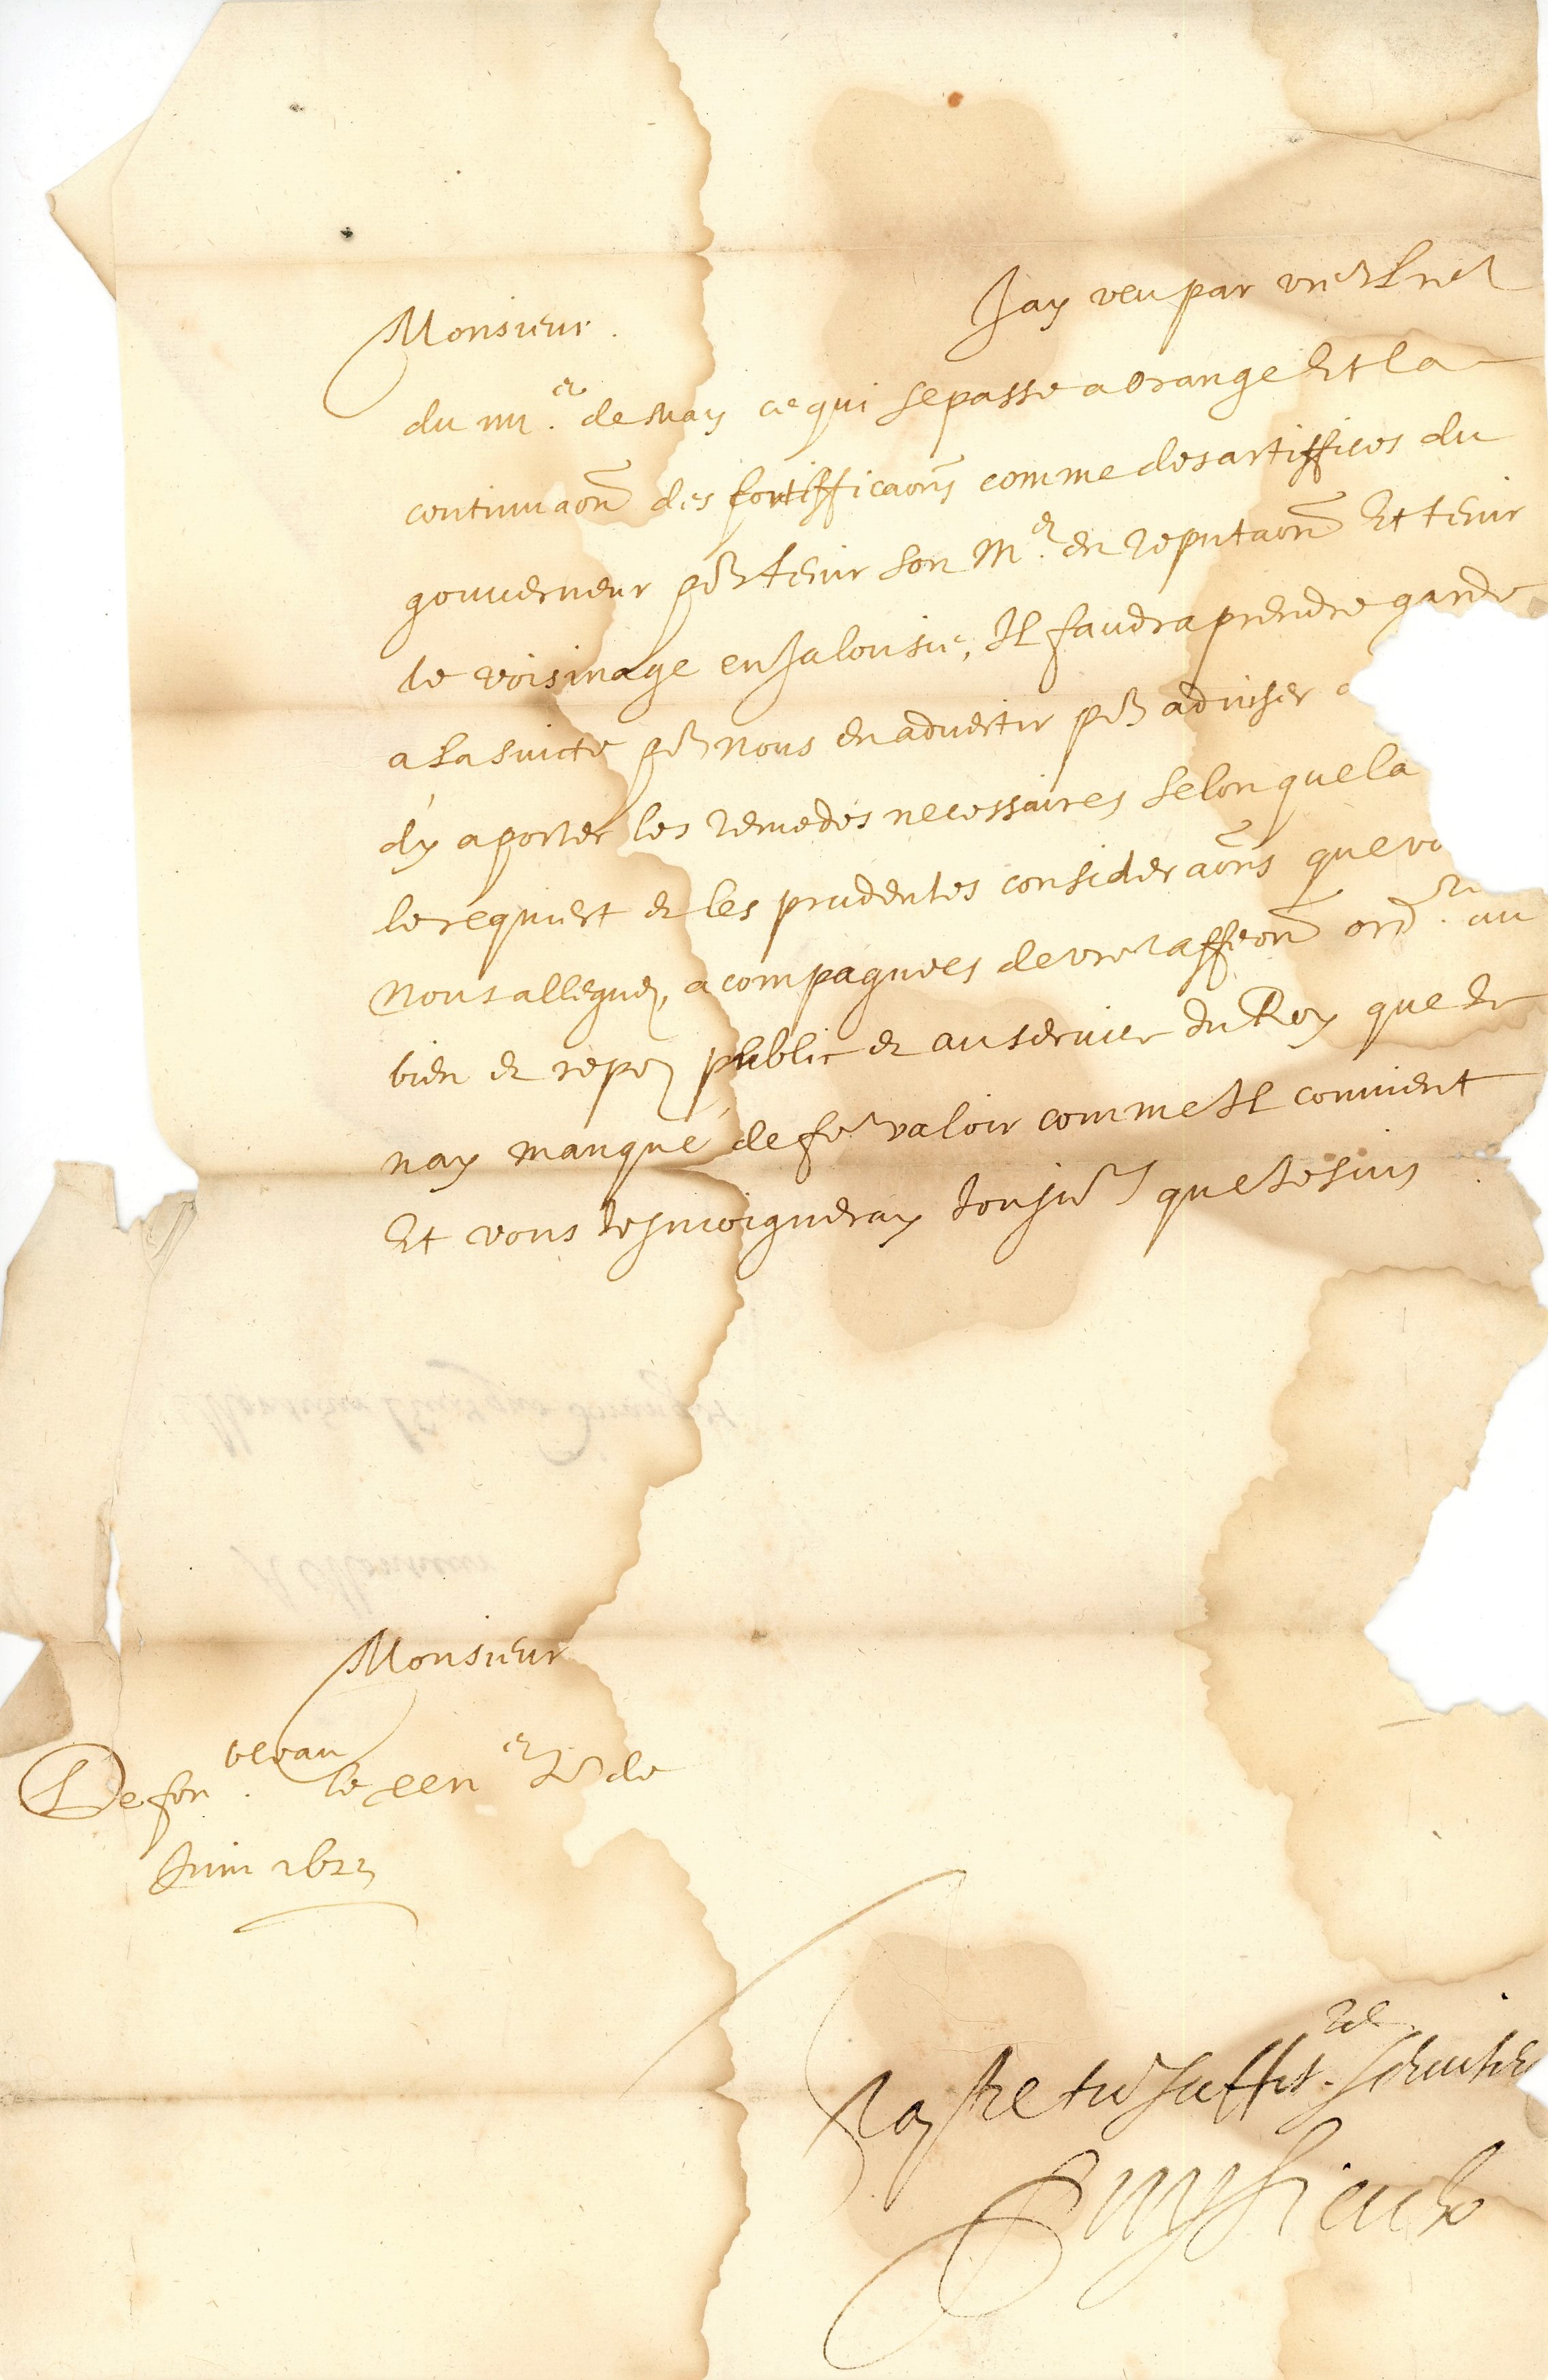 Monsieur. Jay veu par vre lre
du iiiie. de May ce qui se passe a Orange Et la
continuaon des fortifficaons comme des artiffices du
gouverneur por tenir son Me. en reputaon Et tenir
le voisinage en Jalousie, Il faudra prendre garde
a la suicte por nous en advertir por adviser
d'y aporter les remedes necessaires selon que la
le requiert et les prudentes consideraons que vo
nous alleguez, acompagnees de vre affeon ordre. au
bien et repoz public et au service du Roy que Je
nay manqué de fe valoir comme Il convient
Et vous tesmoigneray toujrs que Je suis
Monsieur
De fon.bleau le
Juin 1623
Vostre affet.
Puysieulx
A Monsieur
Monsieur